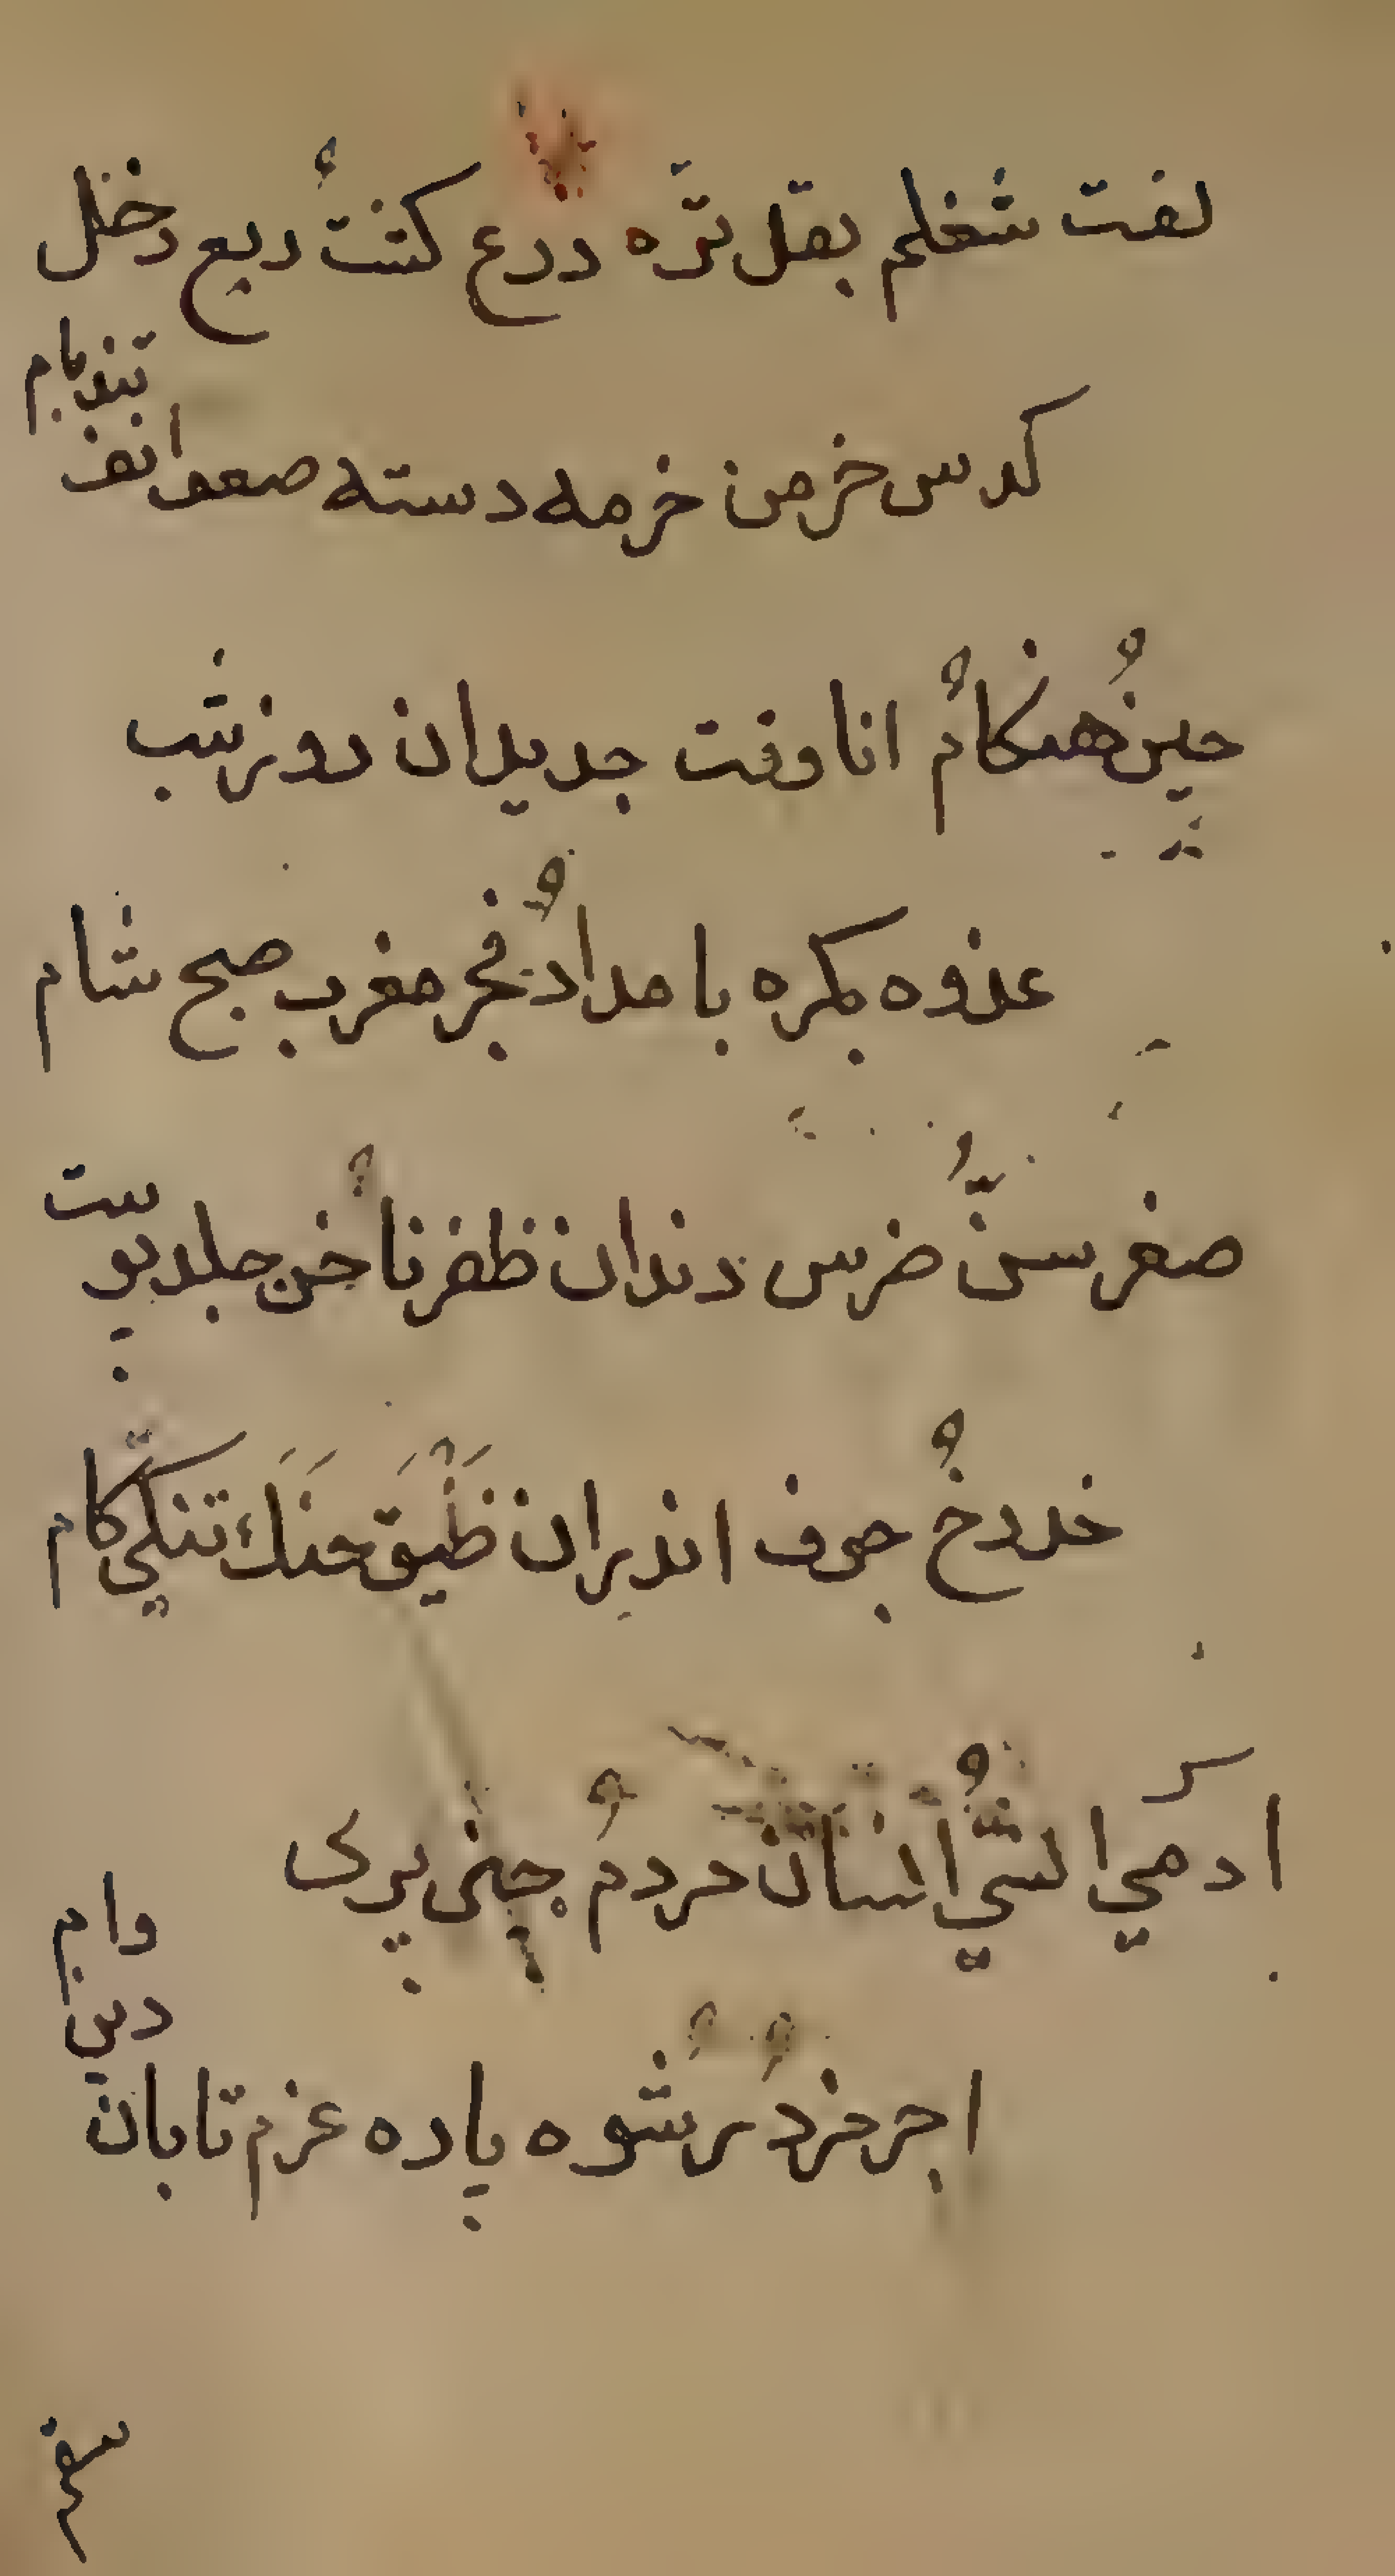 لفت شغلم بقل تره درع كنتُ ربع دخل
كدس خرمن خرمه دسته صعوا نف
حين هنكام انا وقت جديدان روز شب
غدوه بكره بامداد فجر مغرب صبح شام
صغر سنّ ضرس دندان ظفر ناخن جلد پوست
خد رخ جوف اندران ظَيَق حَنَك تنكي كام
ادمي انسان مردم جنى پرى
وام
دين
اجر مزد رشوه پاره عزم تابان
سفر